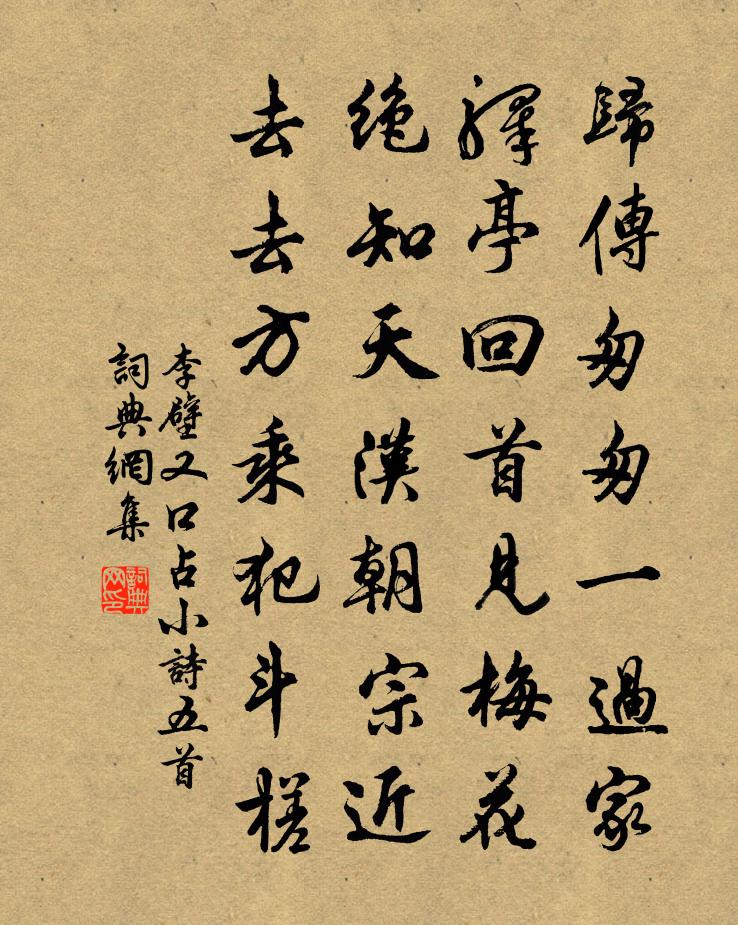 歸傳匆匆一過家
驛亭回首見梅花
絶知天漢朝宗近
去去方乘犯斗槎
李壁又口占小詩五首
詞典網集
詞典网印